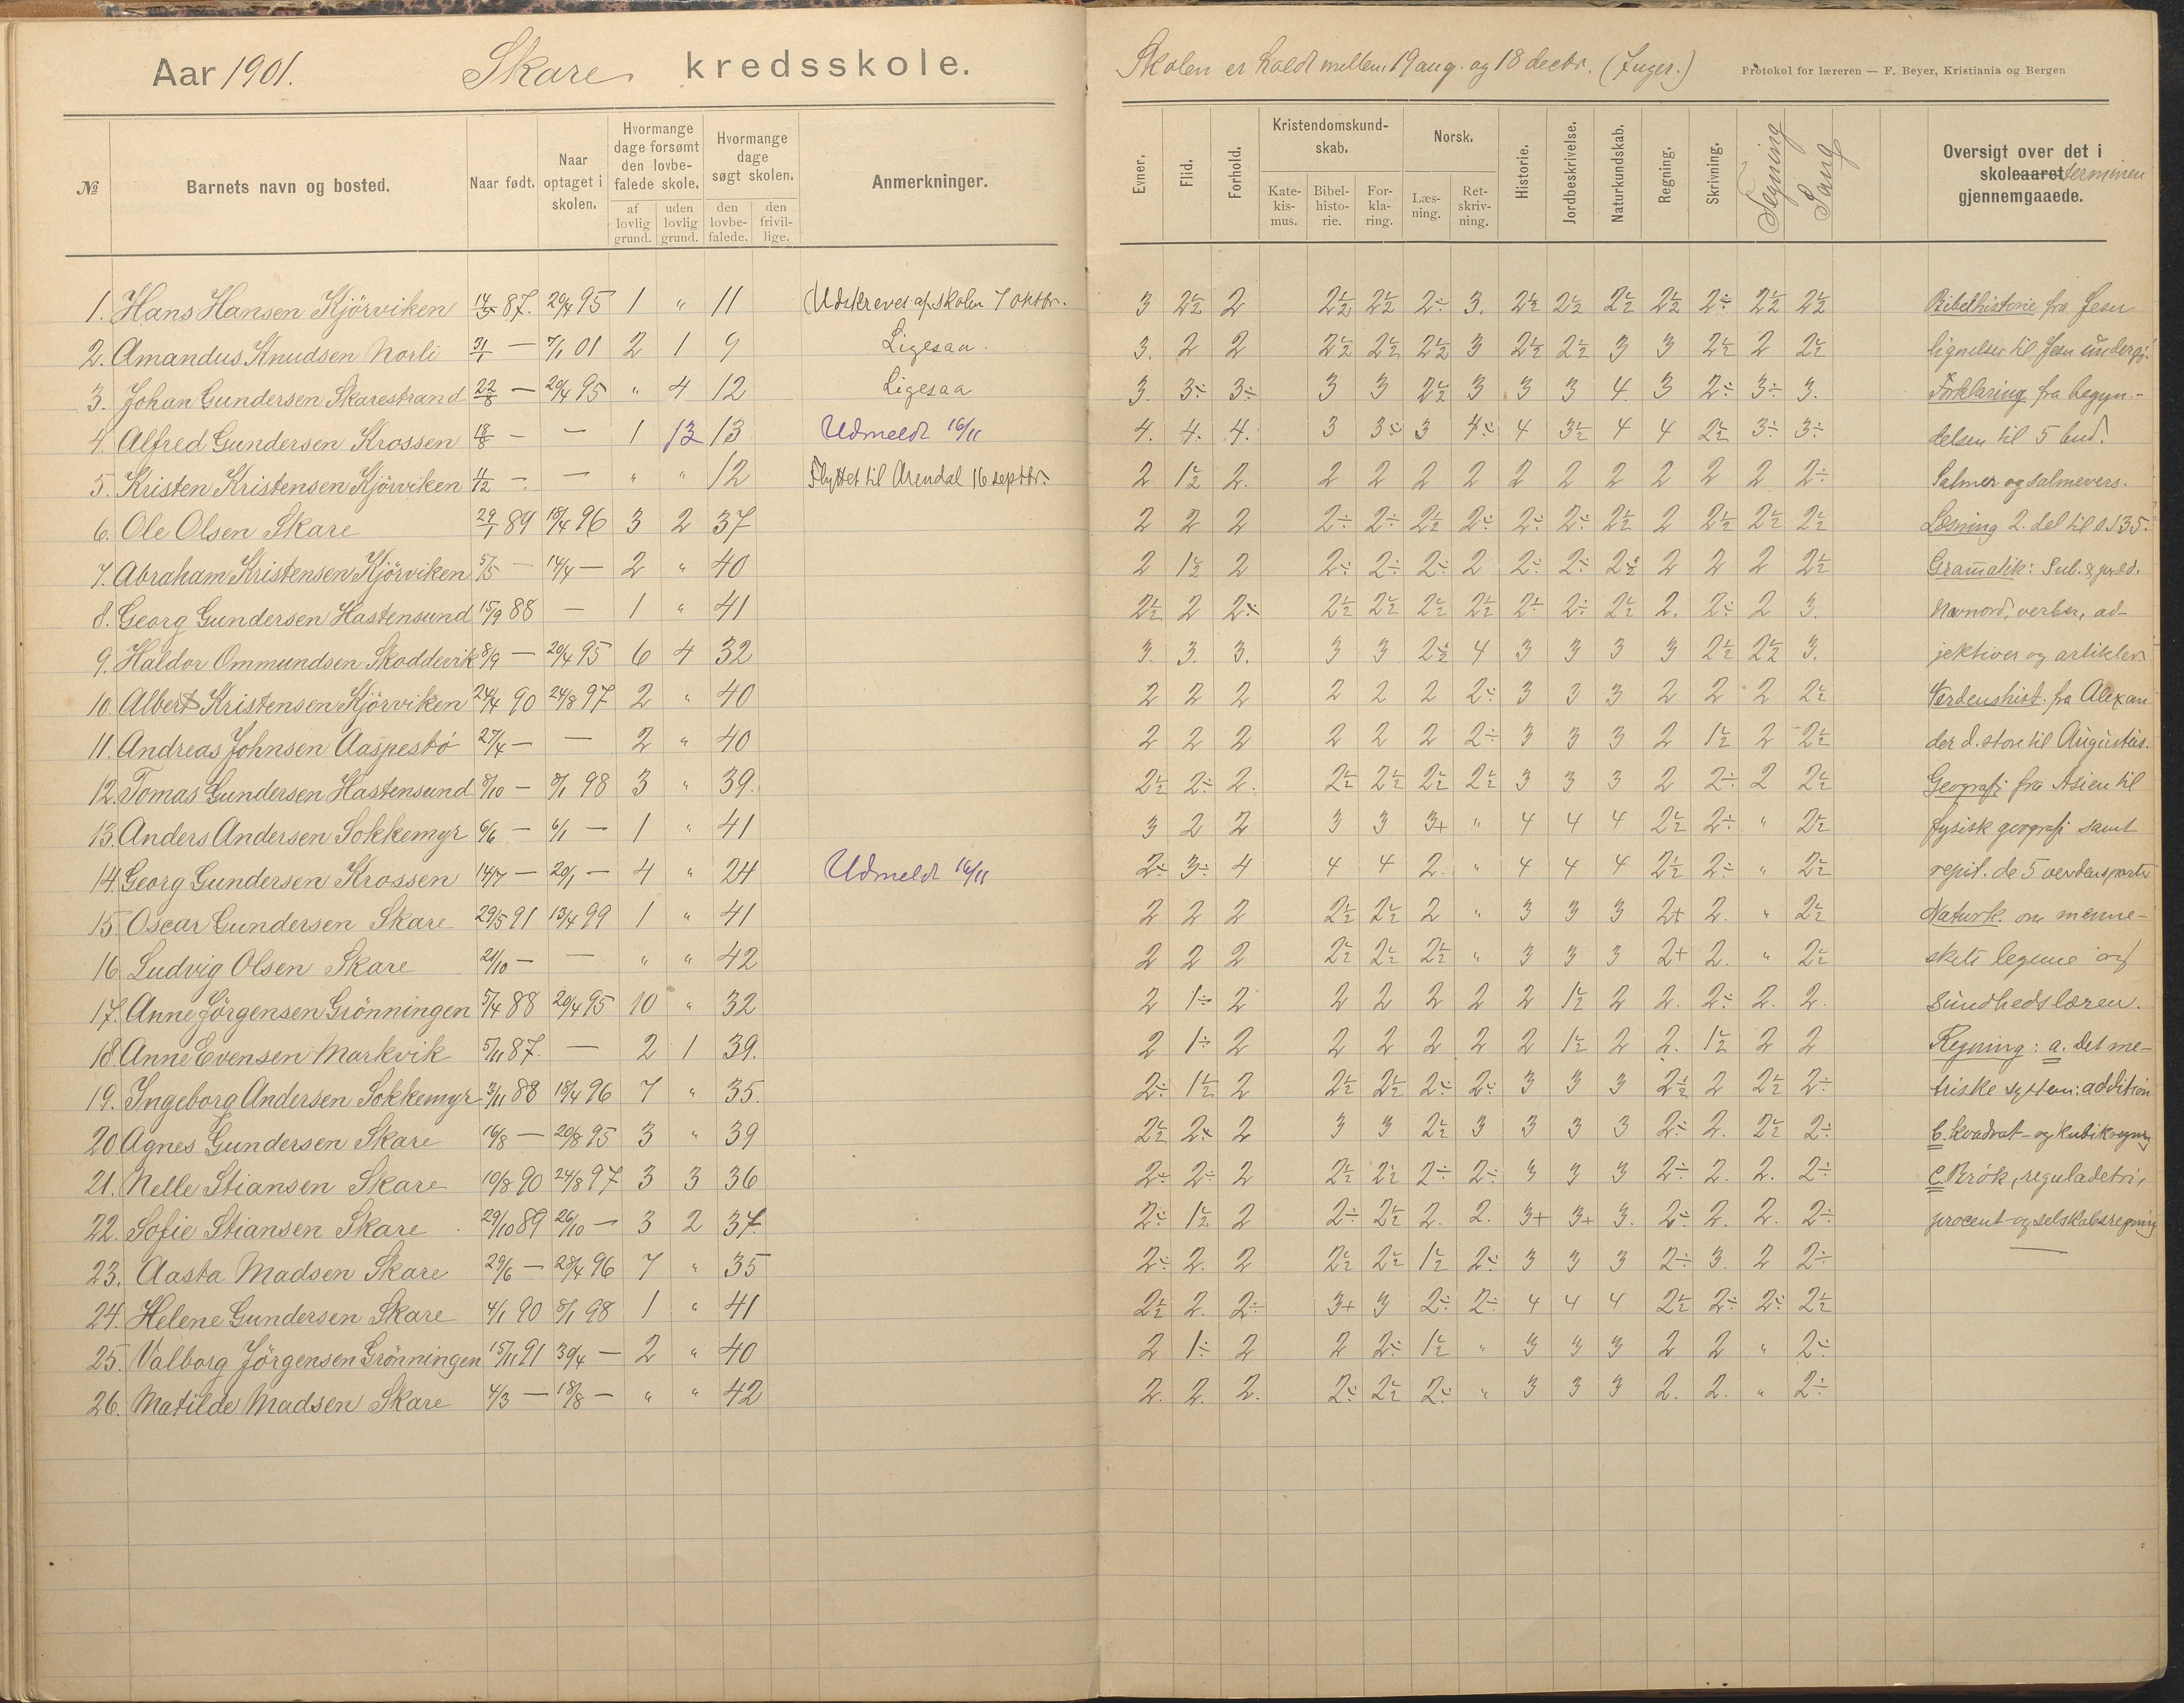 Aar 1901. Skare kredsskole.
Skolen er holdt mellem 19 aug. og 18 decbr.
Protokol for læreren — F. Beyer, Kristiania og Bergen
№ Barnets navn og bosted. Naar født. Naar optaget i skolen. Hvormange dage forsømt den lovbefalede skole. af lovlig grund. uden lovlig grund. Hvormange dage søgt skolen. den lovbefalede. den frivillige. Anmerkninger.
Evner. Flid. Forhold. Kristendomskundskab. Katekismus. Bibelhistorie. Forklaring. Norsk. Læsning. Retskrivning. Historie. Jordbeskrivelse. Naturkundskab. Regning. Skrivning. Tegning Sang
Oversigt over det i skoleaaret terminen gjennemgaaede.
1. Hans Hansen Kjörviken 14/5 87. 20/4 95 1 " 11 Udskrevet af skolen 7 oktbr. 3 2½ 2 2½ 2½ 2÷ 3. 2½ 2½ 2½ 2½ 2÷ 2½ 2½ Bibelhistorie fra Jesu
2. Amandus Knudsen Norli 31/1 — 7/1 01 2 1 9 Ligesaa. 3. 2 2 2½ 2½ 2½ 3 2½ 2½ 3 3 2½ 2 2½ lignelser til Jesu undergj.
3. Johan Gundersen Skarestrand 22/8 — 20/4 95 " 4 12 Ligesaa 3. 3÷ 3÷ 3 3 2½ 3 3 3 4. 3 2÷ 3÷ 3. Forklaring fra begyn-
4. Alfred Gundersen Krossen 18/8 — — 1 13 13 Udmeldt 16/11 4. 4. 4. 3 3÷ 3 4÷ 4 3½ 4 4 2½ 3÷ 3÷ delsen til 5 bud.
5. Kristen Kristensen Kjörviken 11/12 — — " " 12 Flyttet til Arendal 16 septbr. 2 1½ 2. 2 2 2 2 2 2 2 2 2 2 2÷ Salmer og salmevers.
6. Ole Olsen Skare 29/1 89 18/4 96 3 2 37 2 2 2 2÷ 2÷ 2½ 2÷ 2÷ 2÷ 2½ 2 2½ 2½ 2½ Læsning 2. del til s 135.
7. Abraham Kristensen Kjörviken 5/5 — 14/4 — 2 " 40 2 1½ 2 2÷ 2÷ 2÷ 2 2÷ 2÷ 2½ 2 2 2 2½ Gramatik: Sub. & præd.
8. Georg Gundersen Hastensund 15/9 88 — 1 " 41 2½ 2 2÷ 2½ 2½ 2½ 2½ 2½ 2÷ 2½ 2. 2÷ 2 3. Navnord, verber, ad-
9. Haldor Ommundsen Skoddevik 8/9 — 20/4 95 6 4 32 3. 3. 3. 3 3 2½ 4 3 3 3 3 2½ 2½ 3. jektiver og artikler.
10. Albert Kristensen Kjörviken 24/4 90 24/8 97 2 " 40 2 2 2 2 2 2 2÷ 3 3 3 2 2 2 2½ Verdenshist. fra Alexan
11. Andreas Johnsen Aaspesbö 27/4 — — 2 " 40 2 2 2 2 2 2 2÷ 3 3 3 2 1½ 2 2½ der d. store til Augustus.
12. Tomas Gundersen Hastensund 8/10 — 8/1 98 3 " 39. 2½ 2÷ 2. 2½ 2½ 2½ 2½ 3 3 3 2 2÷ 2 2½ Geografi fra Asien til
13. Anders Andersen Sokkemyr 6/6 — 6/1 — 1 " 41 3 2 2 3 3 3+ " 4 4 4 2½ 2÷ " 2½ fysisk geografi samt
14. Georg Gundersen Krossen 14/7 — 20/1 — 4 " 24 Udmeldt 16/11 2÷ 3÷ 4 4 4 2. " 4 4 4 2½ 2÷ " 2½ repit. de 5 verdensparter
15. Oscar Gundersen Skare 29/5 91 13/4 99 1 " 41 2 2 2 2½ 2½ 2 " 3 3 3 2+ 2. " 2½ Naturk. om menne-
16. Ludvig Olsen Skare 21/10 — — " " 42 2 2 2 2½ 2½ 2½ " 3 3 3 2+ 2. " 2½ skets legeme og
17. Anne Jörgensen Grönningen 5/4 88 20/4 95 10 " 32 2 1÷ 2 2 2 2 2 2 1½ 2 2. 2÷ 2. 2. sundhedslæren.
18. Anne Evensen Markvik 5/11 87. — 2 1 39. 2 1÷ 2 2 2 2 2 2 1½ 2 2. 1½ 2 2 Regning: a. det me-
19. Ingeborg Andersen Sokkemyr 3/11 88 18/4 96 7 " 35. 2÷ 1½ 2 2½ 2½ 2÷ 2÷ 3 3 3 2½ 2 2½ 2÷ triske system: addition
20. Agnes Gundersen Skare 16/8 — 20/8 95 3 " 39 2½ 2÷ 2 3 3 2½ 3 3 3 3 2÷ 2. 2½ 2÷ b. kvadrat- og kubikregning
21. Nelle Stiansen Skare 10/8 90 24/8 97 3 3 36 2÷ 2÷ 2 2½ 2½ 2÷ 2÷ 3 3 3 2÷ 2. 2. 2÷ c. Brök, reguladetri,
22. Sofie Stiansen Skare 29/10 89 26/10 — 3 2 37. 2÷ 1½ 2 2÷ 2½ 2. 2. 3+ 3+ 3. 2÷ 2. 2. 2÷ procent- og selskabsregning
23. Aasta Madsen Skare 29/6 — 28/4 96 7 " 35 2÷ 2. 2 2½ 2½ 1½ 2÷ 3 3 3 2÷ 3. 2 2÷
24. Helene Gundersen Skare 4/1 90 8/1 98 1 " 41 2½ 2. 2÷ 3+ 3 2÷ 2÷ 4 4 4 2½ 2÷ 2÷ 2½
25. Valborg Jörgensen Grönningen 15/11 91 30/4 — 2 " 40 2 1÷ 2 2 2÷ 1½ " 3 3 3 2 2 " 2÷
26. Matilde Madsen Skare 4/3 — 18/8 — " " 42 2. 2. 2. 2÷ 2½ 2÷ " 3 3 3 2. 2. " 2÷